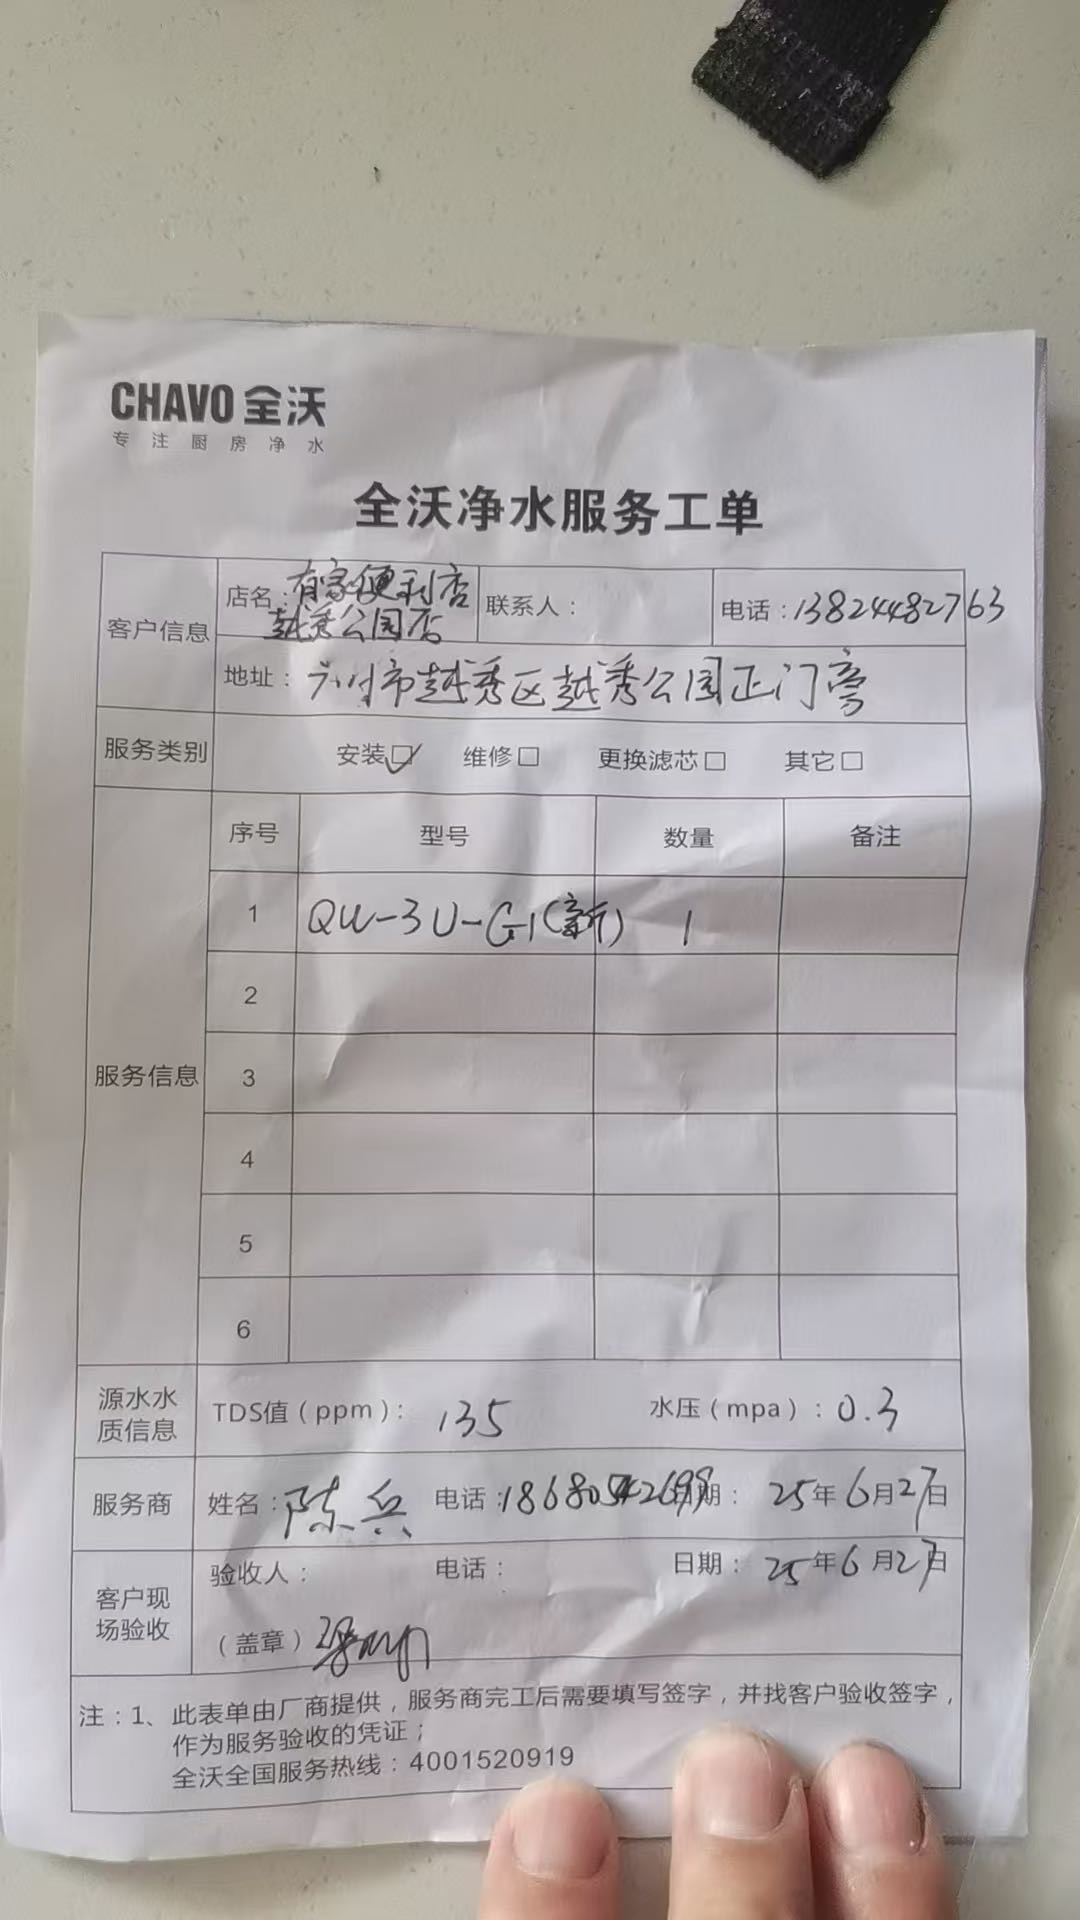 CHAVO 全沃
专注厨房净水
全沃净水服务工单
客户信息
店名：有家便利店
越秀公园店
联系人：
电话：13824482763
地址：广州市越秀区越秀公园正门旁
服务类别
安装☑ 维修□ 更换滤芯□ 其它□
服务信息
序号 型号 数量 备注
1 QW-3U-G1(新) 1
2
3
4
5
6
源水水质信息
TDS值（ppm）：135 水压（mpa）：0.3
服务商
姓名：陈兵 电话：18680542699 日期：25年6月27日
客户现场验收
验收人： 电话： 日期：25年6月27日
（盖章）
注：1、此表单由厂商提供，服务商完工后需要填写签字，并找客户验收签字，
作为服务验收的凭证；
全沃全国服务热线：4001520919